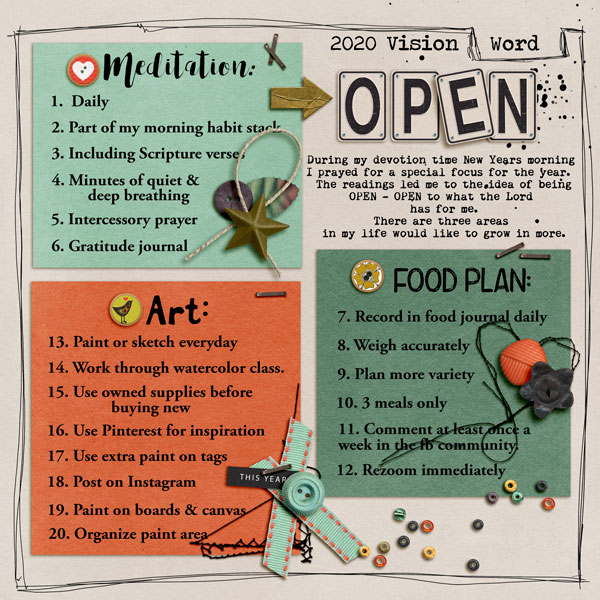 2020 Vision Word
OPEN
During my devotion time New Years morning
I prayed for a special focus for the year.
The readings led me to the idea of being
OPEN - OPEN to what the Lord
has for me.
There are three areas
in my life would like to grow in more.
Meditation:
1. Daily
2. Part of my morning habit stack
3. Including Scripture verses
4. Minutes of quiet &
deep breathing
5. Intercessory prayer
6. Gratitude journal
FOOD PLAN:
7. Record in food journal daily
8. Weigh accurately
9. Plan more variety
10. 3 meals only
11. Comment at least once a
week in the fb community.
12. Rezoom immediately
Art:
13. Paint or sketch everyday
14. Work through watercolor class.
15. Use owned supplies before
buying new
16. Use Pinterest for inspiration
17. Use extra paint on tags
18. Post on Instagram
19. Paint on boards & canvas
20. Organize paint area
THIS YEAR